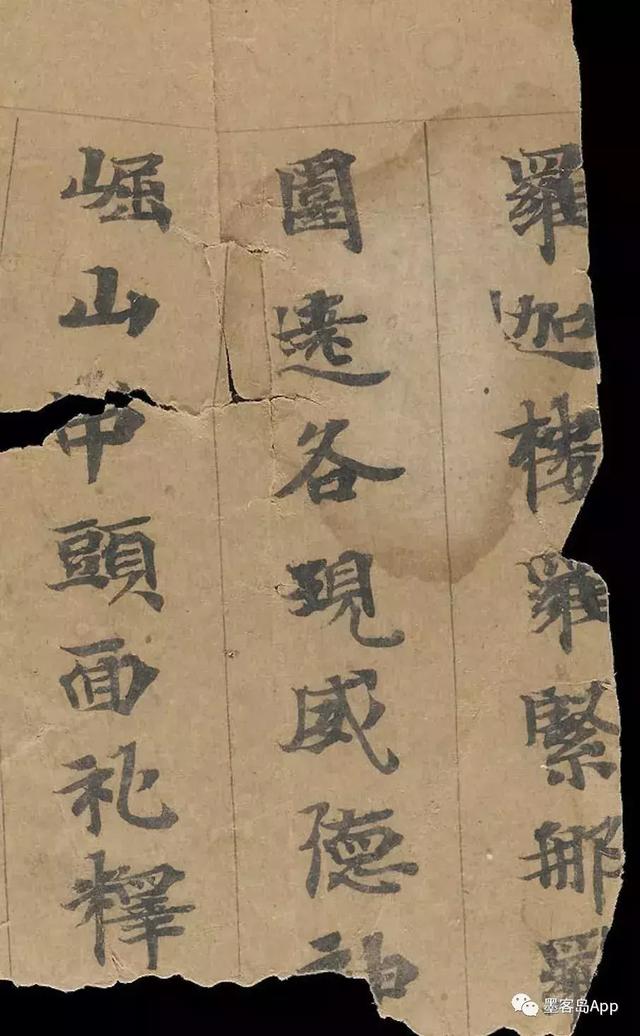 羅迦樓羅緊那羅
圍遶各現威德神
崛山中頭面礼釋
墨客岛App